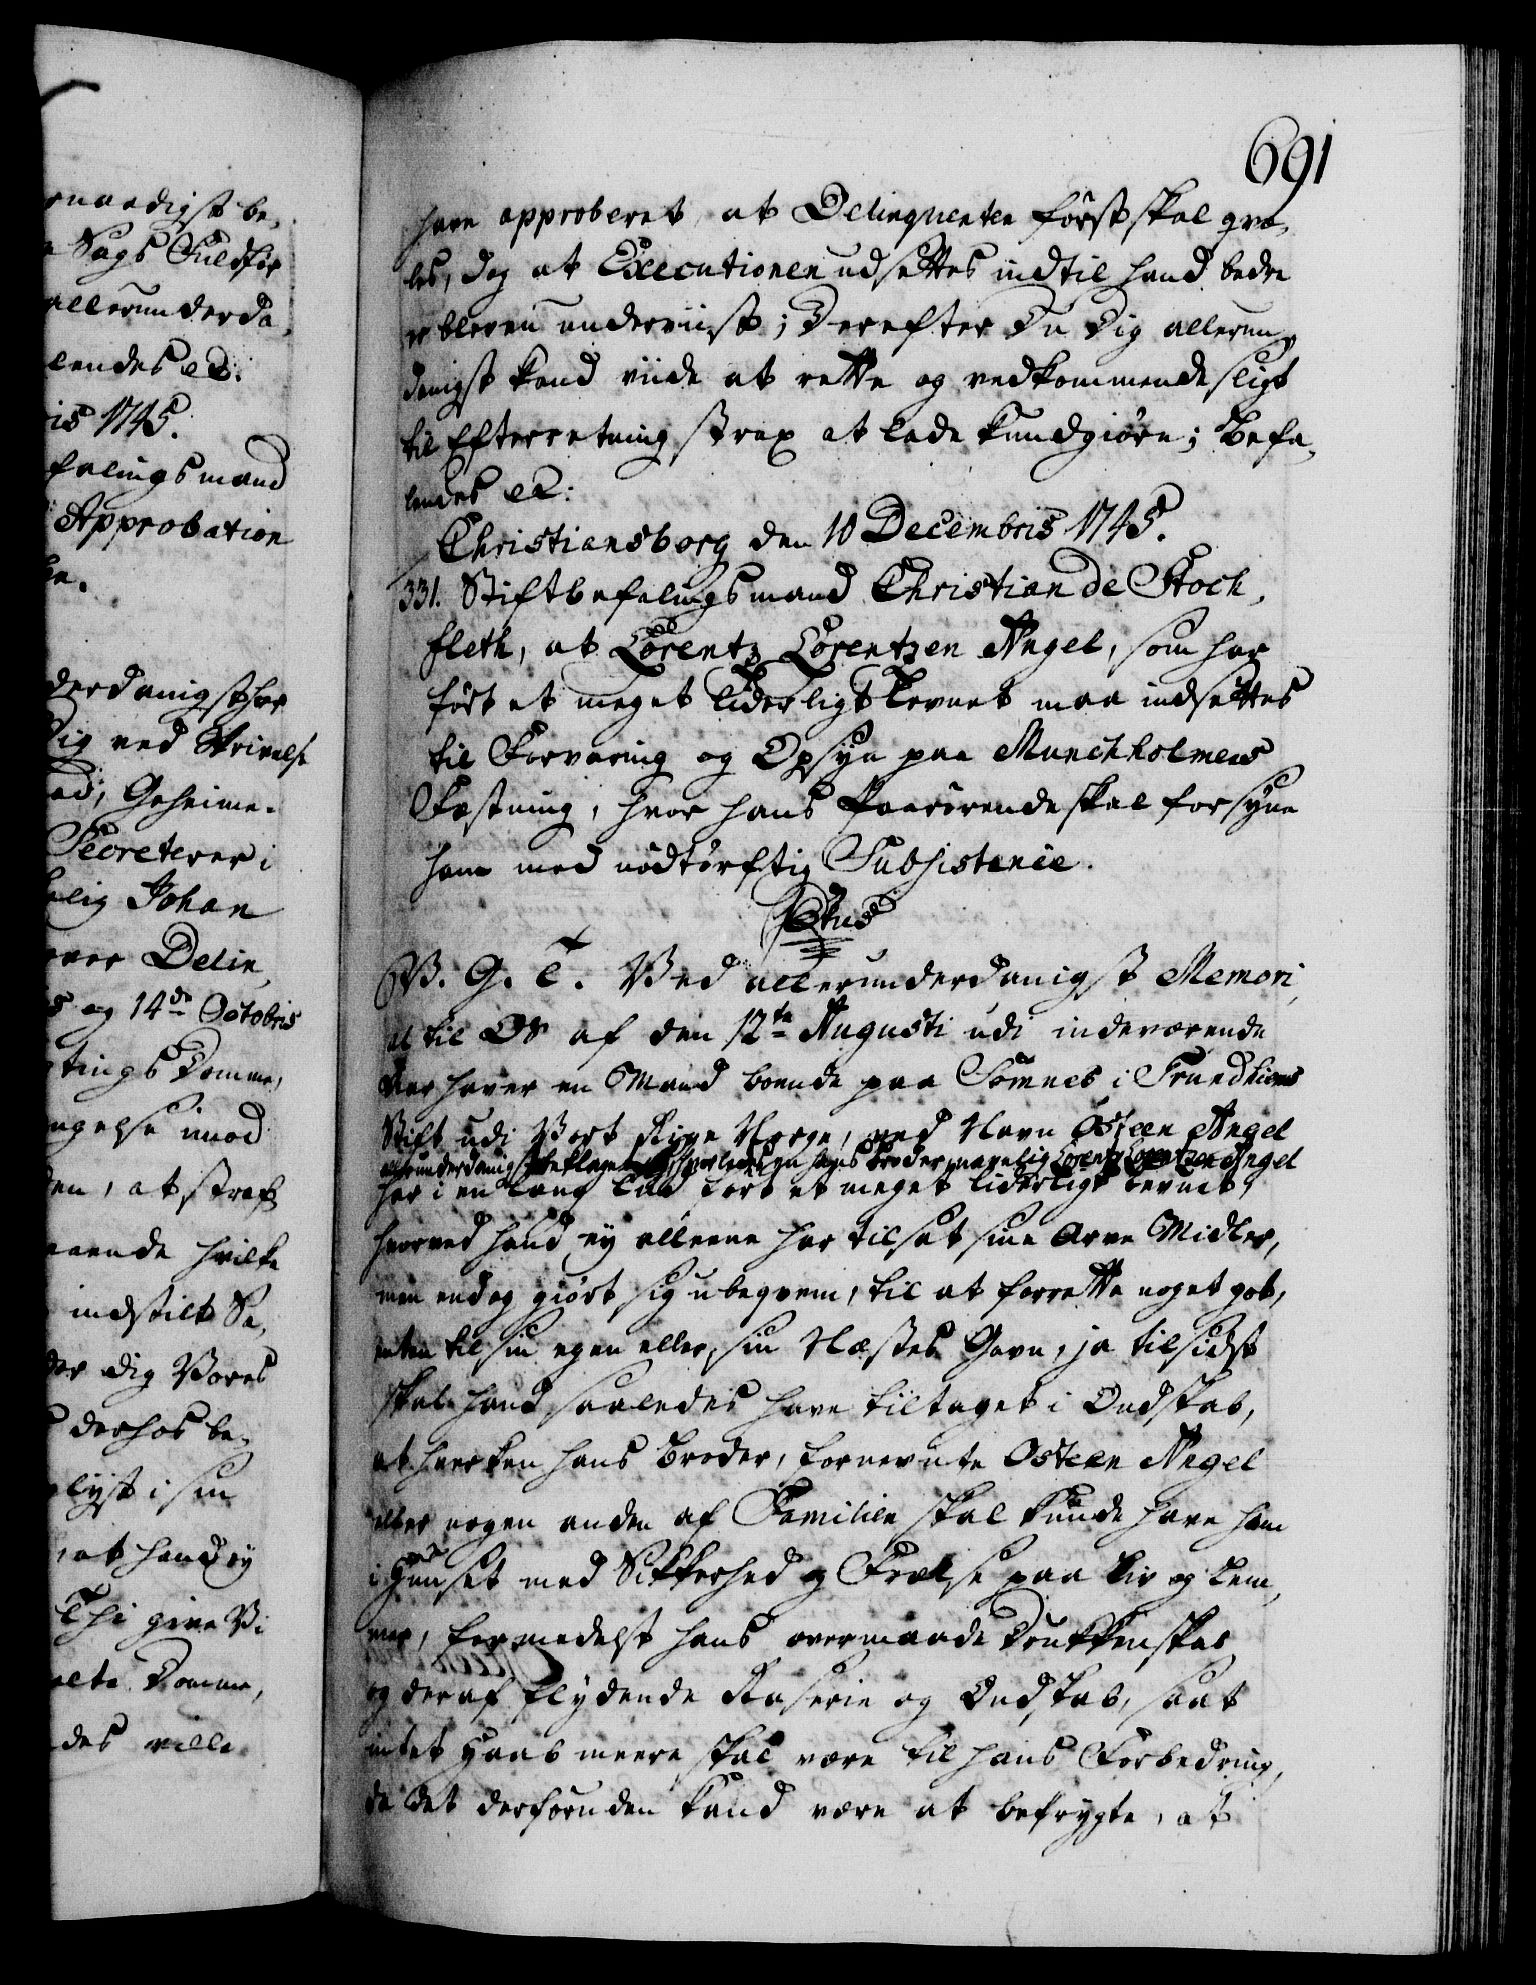 691
rnaadigst be-
Sags Fuldfør
allerunderda-
lendes etc:
ris 1745.
falingsmand
Approbation
ke.
derdanigst har
Dig ved Skrivelse
ed, Geheime-
Secreterer i
nlig Johan
over Delin-
s og 14de Octobris
gtings Domme,
ngelse imod
den, at straf-
rende hvilke
indstilt Sa-
der dig Vores
derhos be-
lyst i sin
at hand ey
Thi give Vi
elte Domme,
des ville
have approberet, at Delinqventen først skal qvæ-
les, dog at Executionen udsættes indtil hand bedre
er bleven underviist; Derefter Du Dig allerun-
danigst kand viide at rette og vedkommende sligt
til Efterretning strax at lade kundgiøre; Befa-
lendes etc:
Christiansborg den 10 Decembris 1745.
331. Stiftbefalingsmand Christian de Stoch-
fleth, at Lorentz Lorentzen Angel, som har
ført et meget Liderligt Levnet maa indsættes
til Forvaring og Opsyn paa Munchholmens
Fæstning, hvor hans Paarørende skal forsyne
ham med nødtørftig Subsistence.
V. G. T. Ved allerunderdanigst Memori-
al til Os af den 12te Augusti udi indeværende
Aar haver en Mand boende paa Sømnes i Trundhiems
Stift udi Vort Rige Norge, ved Navn Osteen Angel
allerunderdanigst beklaget hvorledes en hans Broder, navnlig Lorentz Lorentzen Angel
har i en lang Tiid ført et meget liderligt Levnet,
hvorved hand ey alleene har tilsat sine Arve Midler,
men endog giørt sig ubeqvem, til at forrette noget got,
enten til sin egen eller sin Næstes Gavn, ja tilsidst
skal hand saaledes have tiltaget i Ondskab,
at hverken hans Broder, fornevnte Osteen Angel
eller nogen anden af Familien skal kunde have ham
i Huuset med Sikkerhed og Frælse paa Liv og Lem-
mer, formedelst hans overmaade Drukkenskab
og deraf flydende Raserie og Ondskab, saat
intet Haab meere skal være til hans Forbedring,
da det derforuden kand være at befrygte, at